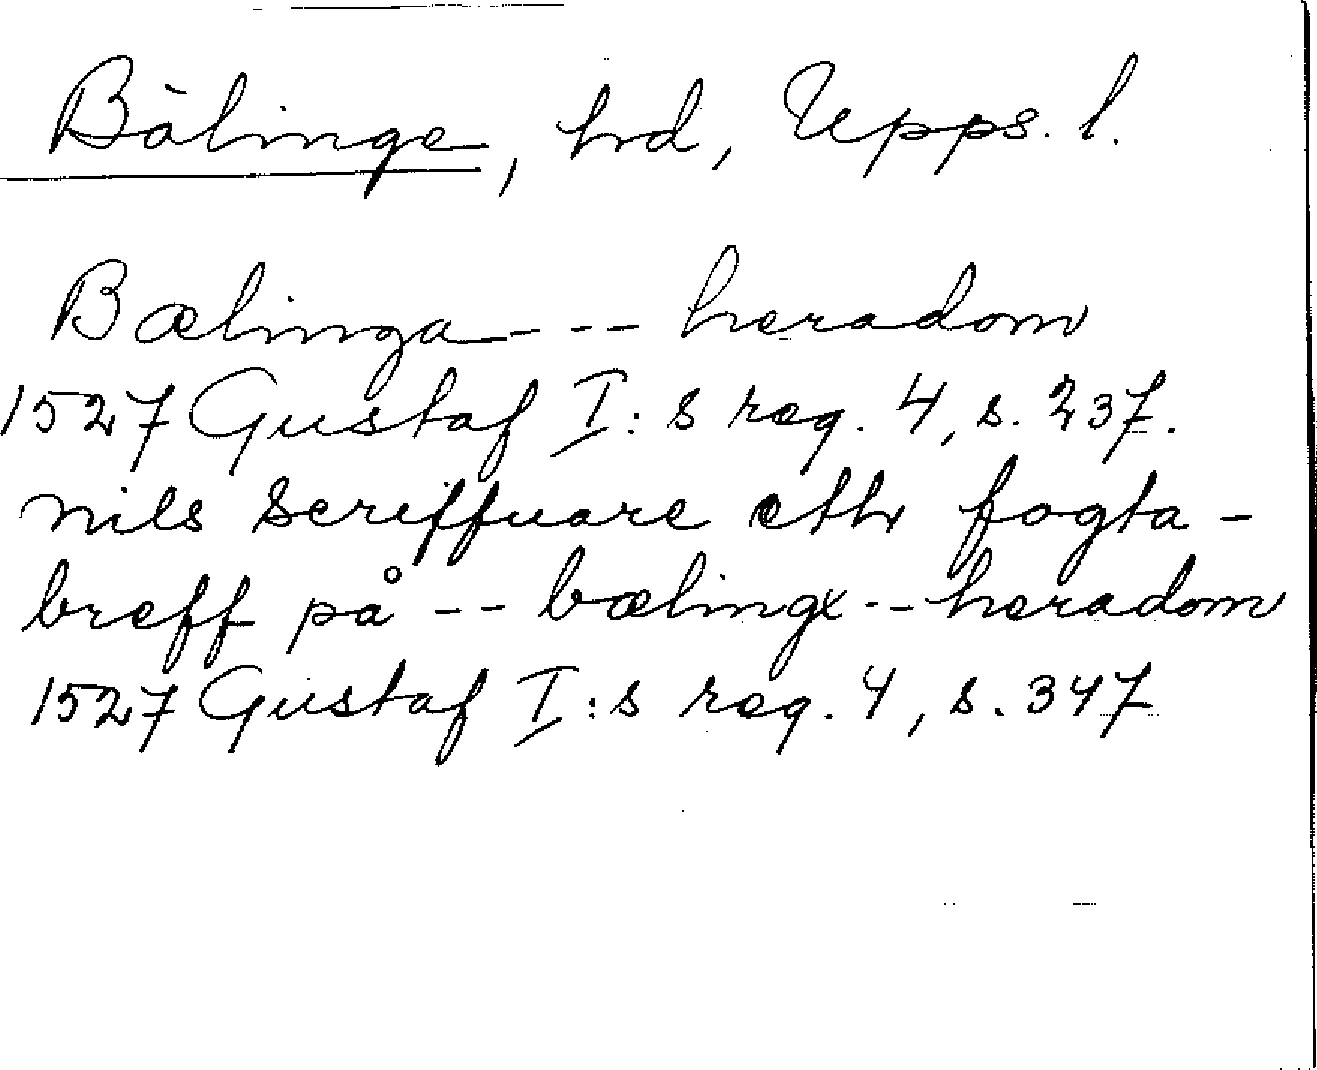 Bälinge, hd, Upps. l.
Bælinga --- heradom
1527 Gustaf I:s reg. 4, s. 237.
nils Scriffuare eth fogta-
breff på -- bælingx -- heradom
1527 Gustaf I:s reg. 4, s. 347